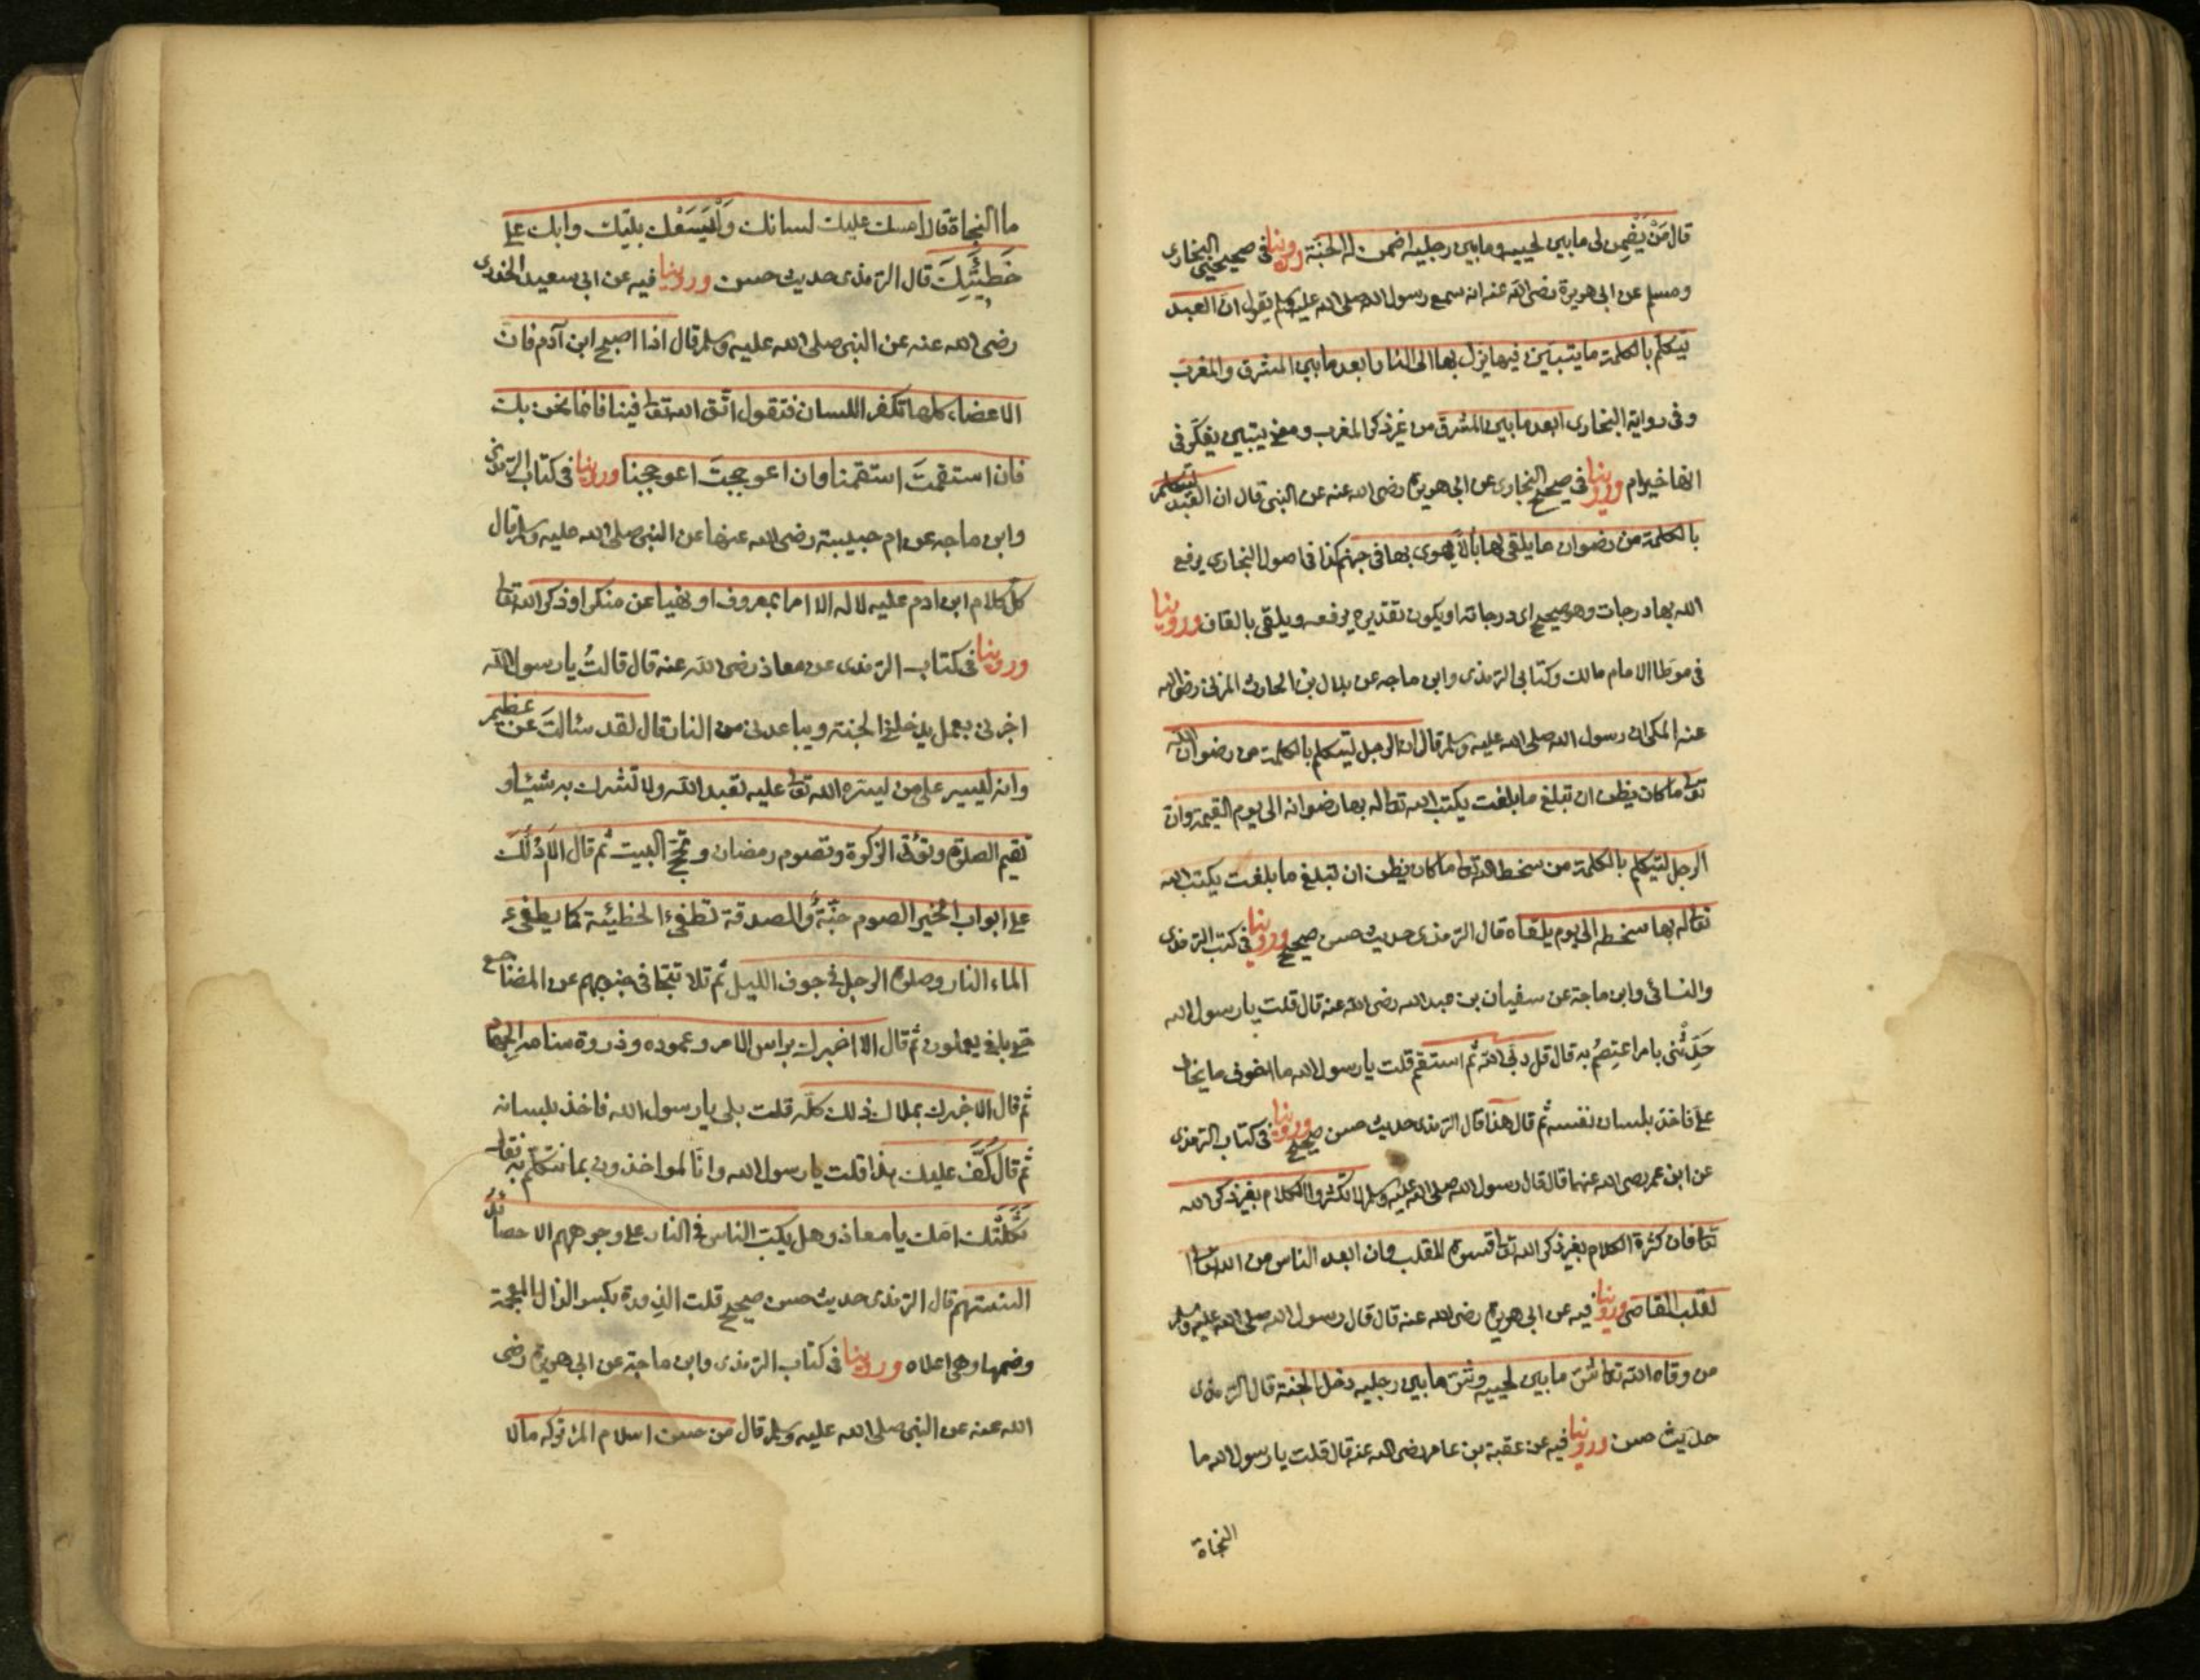 قال مَنْ يَضْمِن لى ما بين لحييه وما بين رجليه اضمن له الجنّة وروينا فى صحيحى البخارى
ومسلم عن ابى هريرة رضى الله عنه انه سمع رسول الله صلى الله عليه وسلم يقول ان العبد
يتكلم بالكلمة ما يتبيّن فيها يزل بها الى النار ابعد ما بين المشرق والمغرب
وفى رواية البخارى ابعد ما بين المشرق من غير ذكر المغرب ومعنى يتبين يفكّر فى
انها خير ام وروينا فى صحيح البخارى عن ابى هريرة رضى الله عنه عن النبى قال ان العبد ليتكلم
بالكلمة من رضوان ما يلقى لها بالاً يهوى بها فى جهنم كذا فى اصول البخارى يرفع
الله بها درجات وهو صحيح اى درجاته او يكون تقديره يرفعه ويلقى بالقاف وروينا
فى موطا الامام مالك وكتابى الترمذى وابن ماجه عن بلال بن الحارث المزنى رضى الله
عنه المكى ان رسول الله صلى الله عليه وسلم قال ان الرجل ليتكلم بالكلمة من رضوان الله
تعا ما كان يظن ان تبلغ ما بلغت يكتب الله تعا له بها رضوانه الى يوم القيمة وان
الرجل ليتكلم بالكلمة من سخط الله تعا ما كان يظن ان تبلغ ما بلغت يكتب الله
تعا له بها سخطه الى يوم يلقاه قال الترمذى حديث حسن صحيح وروينا فى كتب الترمذى
والنسائى وابن ماجة عن سفيان بن عبد الله رضى الله عنه قال قلت يا رسول الله
حَدِّثْنى بامر اعتصِمُ به قال قل ربى الله ثم استقم قلت يا رسول الله ما اخوف ما يخاف
علىّ فاخذ بلسان نفسه ثم قال هذا قال الترمذى حديث حسن صحيح وروينا فى كتاب الترمذى
عن ابن عمر رضى الله عنهما قال قال رسول الله صلى الله عليه وسلم لا تكثروا الكلام بغير ذكر الله
تعا فان كثرة الكلام بغير ذكر الله تعا قسوة للقلب وان ابعد الناس من الله تعا
لقلب القاصى وروينا فيه عن ابى هريرة رضى الله عنه قال قال رسول الله صلى الله عليه وسلم
من وقاه الله تعا شرّ ما بين لحييه وشرّ ما بين رجليه دخل الجنة قال الترمذى
حديث حسن وروينا فيه عن عقبة بن عامر رضى الله عنه قال قلت يا رسول الله ما
النجاة
ما النجاة قال امسك عليك لسانك وَلْيَسَعْك بيتك وابك على
خَطِيْئَتِكَ قال الترمذى حديث حسن وروينا فيه عن ابى سعيد الخدرى
رضى الله عنه عن النبى صلى الله عليه وسلم قال اذا اصبح ابن آدم فان
الاعضاء كلها تكفر اللسان فتقول اتّق الله تعا فينا فانما نحن بك
فان استقمتَ استقمنا وان اعوججتَ اعوججنا وروينا فى كتاب الترمذى
وابن ماجه عن ام حبيبة رضى الله عنها عن النبى صلى الله عليه وسلم قال
كل كلام ابن ادم عليه لا له الا امرا بمعروف او نهيا عن منكر او ذكر الله تعا
وروينا فى كتاب الترمذى عن معاذ رضى الله عنه قال قالتُ يا رسول الله
اخبرنى بعمل يدخلنى الجنة ويباعدنى من النار قال لقد سئالتَ عن عظيم
وانه ليسير على من ليسّره الله تعا عليه تعبد الله ولا تشرك به شيئا و
تقيم الصلوة وتؤتى الزكوة وتصوم رمضان وتحجّ البيت ثم قال الا ادُلُّك
على ابواب الخير الصوم جنّةٌ والصدقة تطفىء الخطيئة كما يطفىء
الماء النار وصلوة الرجل فى جوف الليل ثم تلا تتجافى جنوبهم عن المضاجع
حتى بلغ يعملون ثم قال الا اخبرك براس الامر وعموده وذروة سنامه الجهاد
ثم قال الا اخبرك بملاك ذلك كلّه قلت بلى يا رسول الله فاخذ بلسانه
ثم قال كُفَّ عليك هذا قلت يا رسول الله وانّا لمواخذون بما نتكلّم به فقال
ثَكَلَتْك امّك يا معاذ وهل يكبّ الناس فى النار على وجوههم الا حصائد
السنتهم قال الترمذى حديث حسن صحيح قلت الذِروة بكسر الذال المعجمة
وضمها وهى اعلاه وروينا فى كتاب الترمذى وابن ماجة عن ابى هريرة رضى
الله عنه عن النبى صلى الله عليه وسلم قال من حسن اسلام المرء تركه ما لا